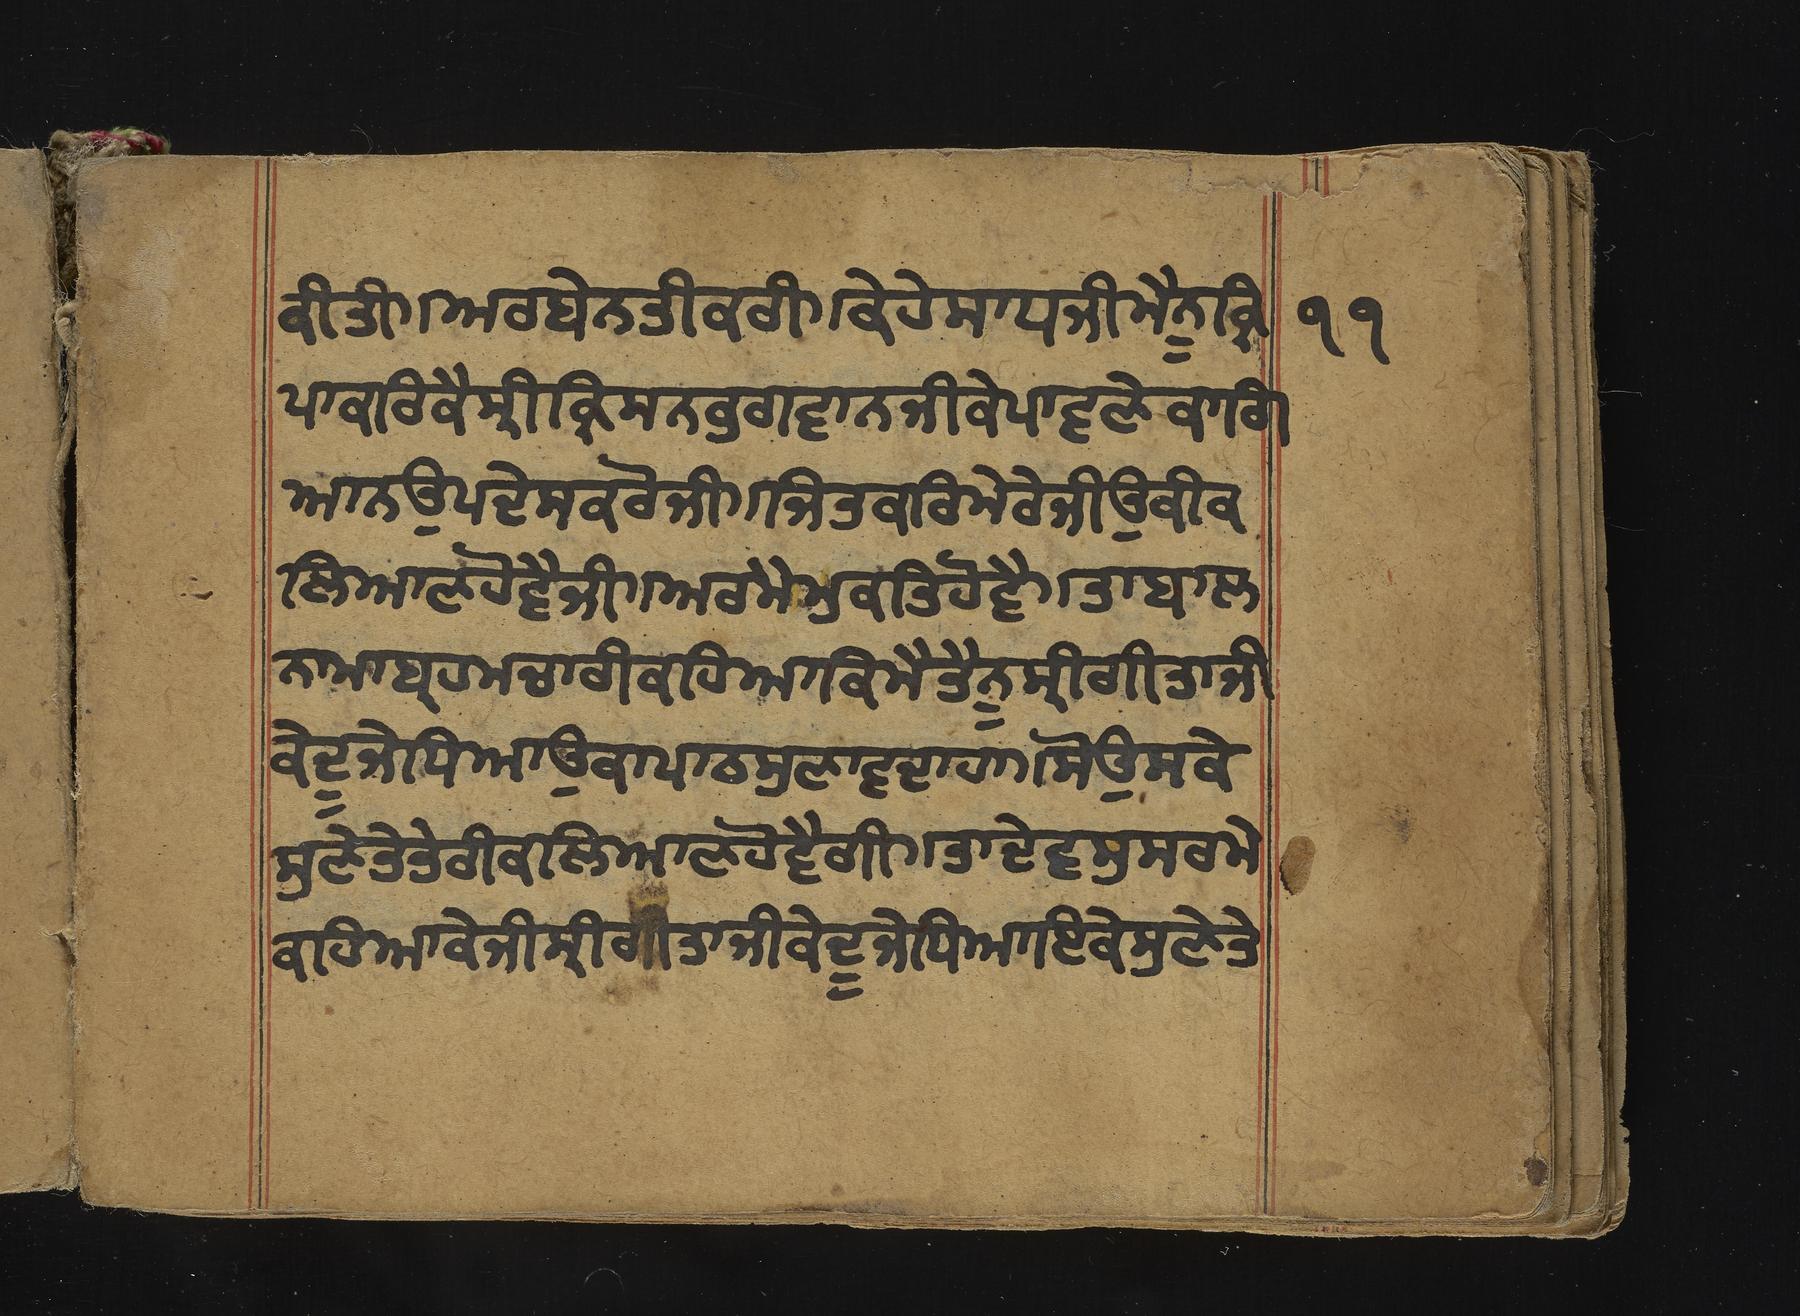 ਕੀਤੀ॥ਅਰਬੇਨਤੀਕਰੀ॥ਕੇਹੇਸਾਧਜੀਮੈਨੂਕ੍ਰਿ ੧੧
ਪਾਕਰਿਕੈਸ੍ਰੀਕ੍ਰਿਸਨਭੁਗਵਾਨਜੀਕੇਪਾਵਣੇਕਾਗਿ
ਆਨਉਪਦੇਸਕਰੋਜੀ॥ਜਿਤਕਰਿਮੇਰੇਜੀਉਕੀਕ
ਲਿਆਣਹੋਵੈਜੀ॥ਅਰਮੇਮੁਕਤਿਹੋਵੈ॥ਤਾਬਾਲ
ਨਾਮਾਬ੍ਰਹਮਚਾਰੀਕਹਿਆਕਿਮੈਤੈਨੂਸ੍ਰੀਗੀਤਾਜੀ
ਕੇਦੂਜੇਧਿਆਉਕਾਪਾਠਸੁਣਾਵਦਾਹਾ॥ਸੋਉਸਕੇ
ਸੁਣੇਤੇਤੇਰੀਕਲਿਆਣਹੋਵੈਗੀ॥ਤਾਦੇਵਸੁਸਰਮੇ
ਕਹਿਆਕੇਜੀਸ੍ਰੀਗੀਤਾਜੀਕੇਦੂਜੇਧਿਆਇਕੇਸੁਣੇਤੇ